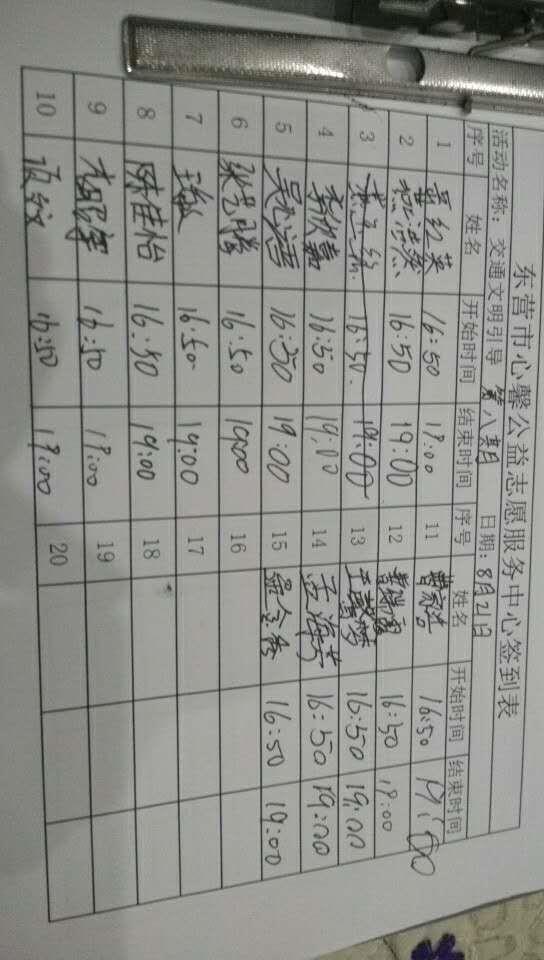 东营市心馨公益志愿服务中心签到表
活动名称：交通文明引导 第八期 日期：8月21日
序号 姓名 开始时间 结束时间 序号 姓名 开始时间 结束时间
1 红英 16:50 19:00 11 16:50 19:00
2 16:50 19:00 12 16:50 19:00
3 16:50 19:00 13 王馨梦 16:50 19:00
4 李欣嘉 16:50 19:00 14 孟海芳 16:50 19:00
5 16:50 19:00 15 16:50 19:00
6 16:50 19:00 16
7 16:50 19:00 17
8 陈佳怡 16:50 19:00 18
9 16:50 19:00 19
10 16:50 19:00 20